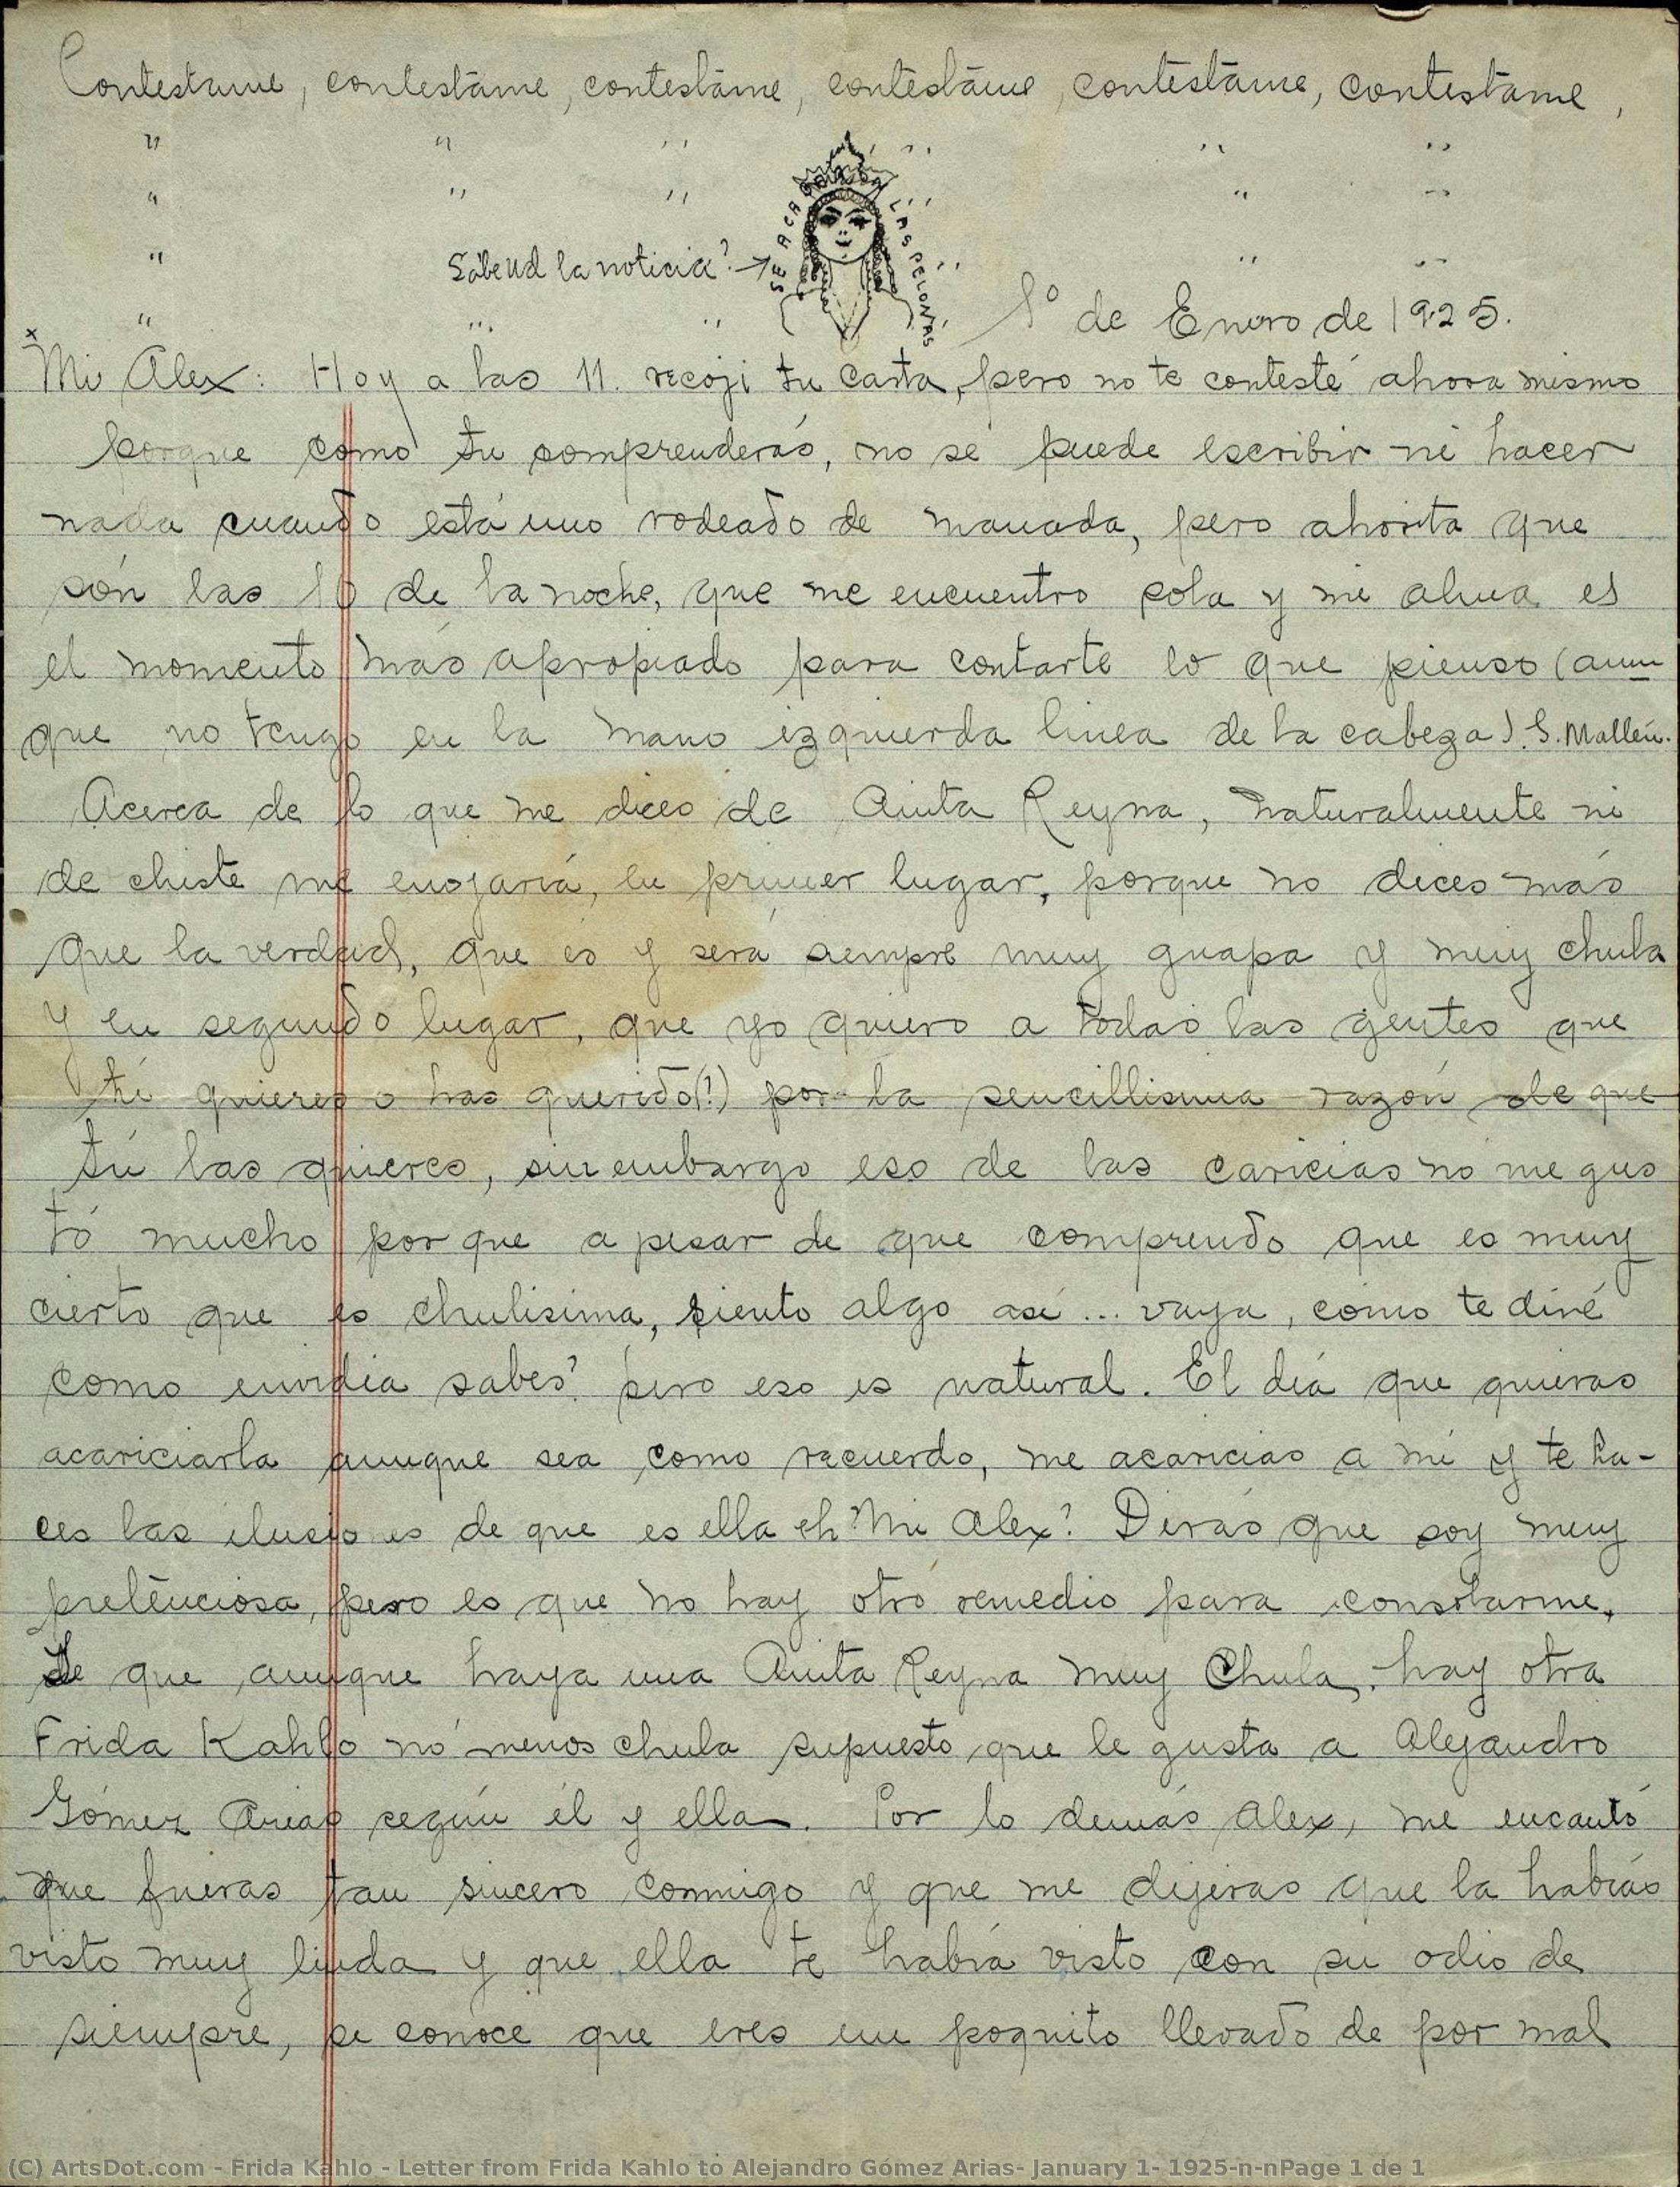 Contestame, contestáme, contestáme, contestáme, contestáme, contestáme,
" " ' ' ' ' ' ' ' '
" ' ' ' ' ' ' " ' '
" Sabe Ud la noticia? → SE ACABARON LAS PELONAS ' ' ' ' ' '
" " ' ' 1º de Enero de 1925.
x
Mi Alex: Hoy a las 11. recojí tu carta, pero no te contesté ahora mismo
porque como tu comprenderás, no se puede escribir ni hacer
nada cuando está uno rodeado de manada, pero ahorita que
son las 10 de la noche, que me encuentro sola y mi alma es
el momento más apropiado para contarte lo que pienso (aun
que no tengo en la mano izquierda linea de la cabeza). S. Mallén.
Acerca de lo que me dices de Anita Reyna, naturalmente ni
de chiste me enojaría, en primer lugar, porque no dices más
que la verdad, que es y será siempre muy guapa y muy chula
y en segundo lugar, que yo quiero a todas las gentes que
tú quieres o has querido(!) por la sencillisima razón de que
tú las quieres, sin embargo eso de las caricias no me gus
tó mucho por que a pesar de que comprendo que es muy
cierto que es chulisima, siento algo así ... vaya, como te diré
como envidia sabes? pero eso es natural. El día que quieras
acariciarla aunque sea como recuerdo, me acaricias a mí y te ha-
ces las ilusiones de que es ella eh? Mi Alex? Dirás que soy muy
preténciosa, pero es que no hay otro remedio para consolarme,
De que aunque haya una Anita Reyna muy Chula, hay otra
Frida Kahlo no menos chula supuesto que le gusta a Alejandro
Gómez Arias según él y ella. Por lo demás Alex, me encantó
que fueras tan sincero conmigo y que me dijeras que la habías
visto muy linda y que ella te había visto con su odio de
siempre, se conoce que eres un poquito llevado de por mal
(C) ArtsDot.com - Frida Kahlo - Letter from Frida Kahlo to Alejandro Gómez Arias- January 1- 1925-n-nPage 1 de 1